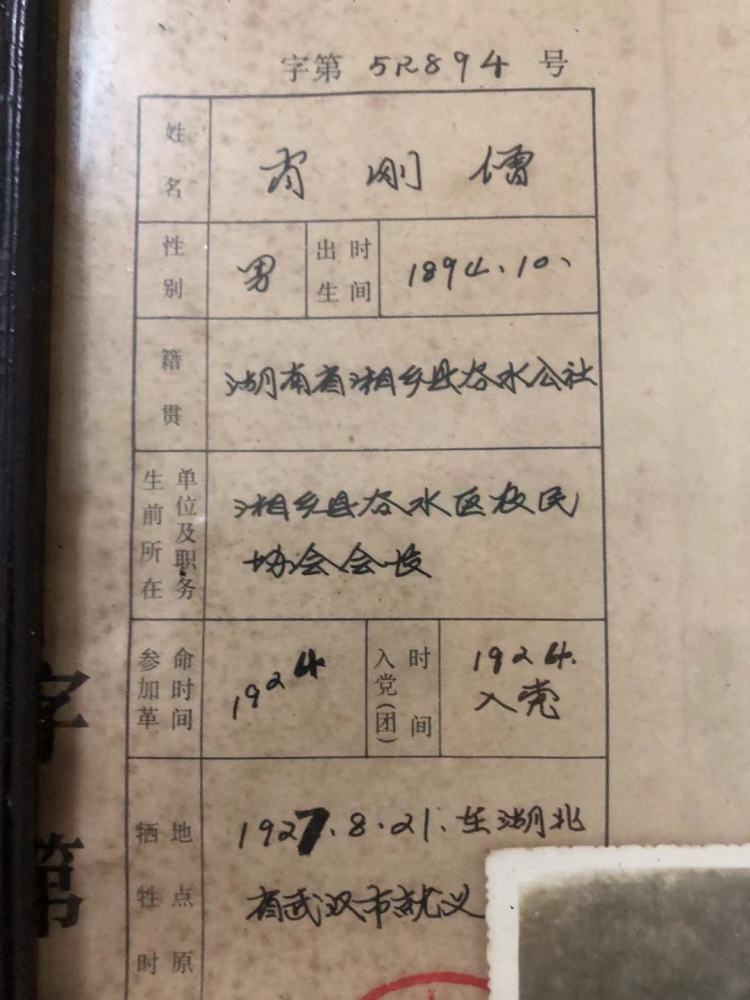 字第 5R894 号
姓名 肖刚僧
性别 男 出生时间 1894.10、
籍贯 湖南省湘乡县谷水公社
生前所在单位及职务 湘乡县谷水区农民
协会会长
参加革命时间 1924 入党(团)时间 1924.
入党
牺牲时 地点原 1927.8.21.在湖北
省武汉市就义
字第